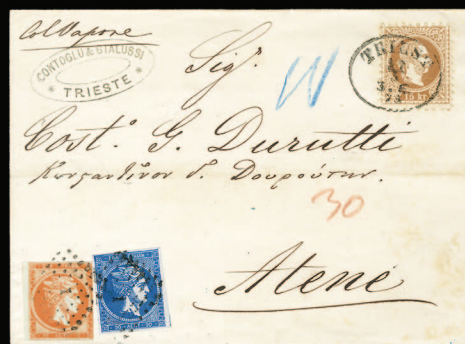 Col Vapore
CONTOGLU & GIALUSSI
* TRIESTE *
Sigr.
TRIEST
15 KR
Cost. G. Durutti
Κωνσαντῖνον δ. Δουρούτην.
30
Atene